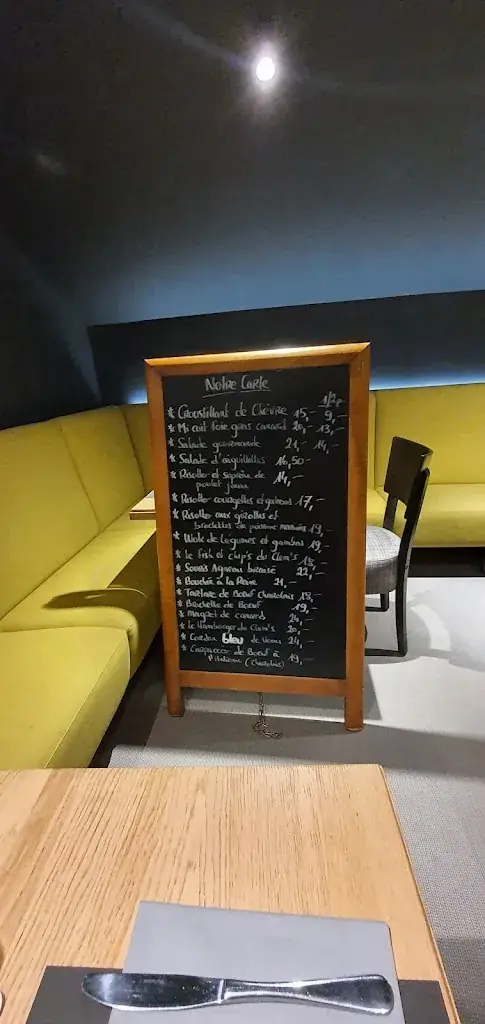 Notre Carte
1/2 p.
* Croustillant de Chèvre 15,- 9,-
* Mi cuit foie gras canard 20,- 13,-
* Salade gourmande 21,- 14,-
* Salade d'aiguillettes 16,50-
* Risotto et suprême de
poulet jaune 14,-
* Risotto courgettes et gambas 17,-
* Risotto aux girolles et
brochettes de poissons marinées 19,-
* Wok de légumes et gambas 19,-
* Le Fish et chip's du Clem's 18,-
* Souris Agneau braisé 22,-
* Bouchée à la Reine 21,-
* Tartare de Boeuf Charolais 18,-
* Brochette de Boeuf 19,-
* Magret de canard 24,-
* Le Hamburger du Clem's 20,-
* Cordon bleu de Veau 24,-
* Carpaccio de Boeuf à
l'italienne (Charolais) 19,-